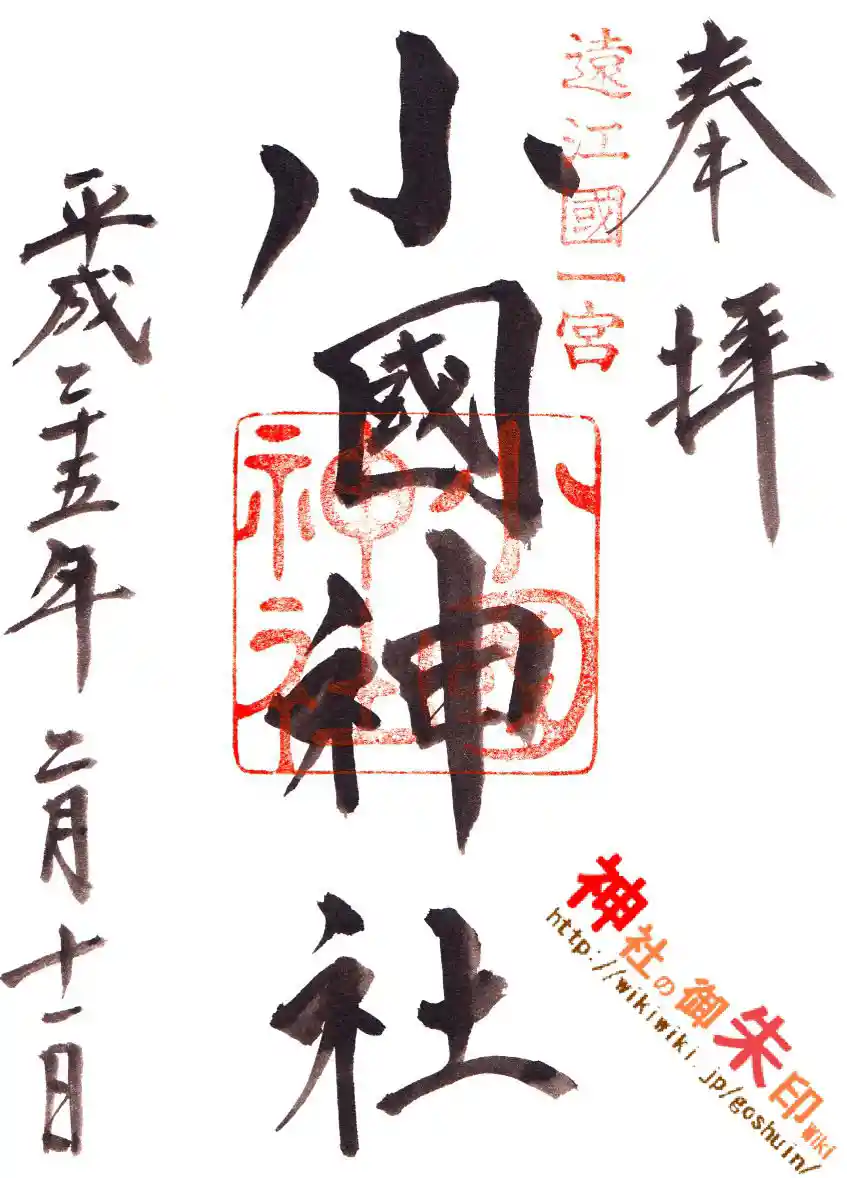 奉拝
遠江國一宮
小國神社
小國神社
平成二十五年二月十一日
神社の御朱印wiki
http://wikiwiki.jp/goshuin/